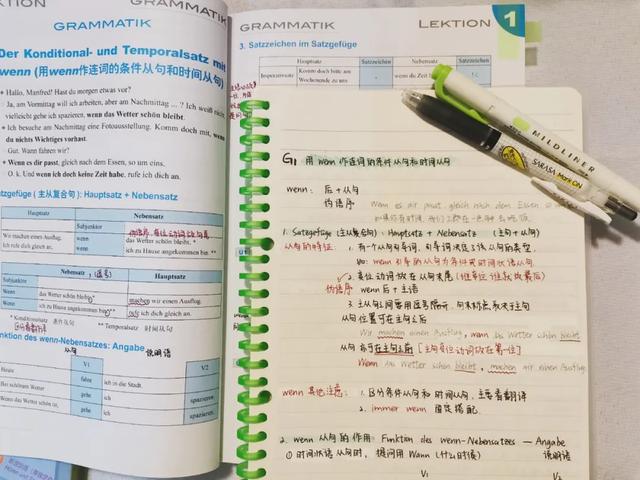 GRAMMATIK
GRAMMATIK
LEKTION 1
Der Konditional- und Temporalsatz mit
wenn (用wenn作连词的条件从句和时间从句)
Hallo, Manfred! Hast du morgen etwas vor?
Ja, am Vormittag will ich arbeiten, aber am Nachmittag ... ? Ich weiß nicht,
vielleicht gehe ich spazieren, wenn das Wetter schön bleibt.
Ich besuche am Nachmittag eine Fotoausstellung. Komm doch mit, wenn
du nichts Wichtiges vorhast.
Gut. Wann fahren wir?
Wenn es dir passt, gleich nach dem Essen, so um eins.
O. k. Und wenn ich doch keine Zeit habe, rufe ich dich an.
Satzgefüge (主从复合句): Hauptsatz + Nebensatz
Hauptsatz Nebensatz
Subjunktor
Wir machen einen Ausflug. wenn das Wetter schön bleibt. *
Ich rufe dich gleich an. wenn ich zu Hause angekommen bin. **
Nebensatz Hauptsatz
Subjunktor
Wenn das Wetter schön bleibt machen wir einen Ausflug.
Wenn ich zu Hause angekommen bin rufe ich dich gleich an.
* Konditionalsatz 条件从句 ** Temporalsatz 时间从句
Funktion des wenn-Nebensatzes: Angabe
从句 说明语
V1 V2
Heute fahre ich in die Stadt.
Bei schönem Wetter gehe ich spazieren.
Wenn das Wetter schön ist, gehe ich spazieren.
3. Satzzeichen im Satzgefüge
Hauptsatz Satzzeichen Nebensatz Satzzeichen
Imperativsatz Komm doch bitte am Wochenende zu uns wenn du Zeit
MILDLINER
SARASA Mark ON
G1 用 wenn 作连词的条件从句和时间从句
wenn: 后+从句
倒语序 Wenn es dir passt, gleich nach dem Essen
1. Satzgefüge (主从复合句): Hauptsatz + Nebensatz (主句+从句)
从句的特征: 1. 有一个从句引导词, 引导词决定了该从句的类型,
如: wenn 引导的从句为条件或时间状语从句
2. 变位动词放在从句末尾
倒语序 wenn 后+主语
3. 主从句之间要用逗号隔开, 句末标点取决于主句
从句位置可在主句之后
Wir machen einen Ausflug, wenn das Wetter schön bleibt
从句亦可在主句之前 [主句变位动词放在第一位]
Wenn das Wetter schön bleibt, machen wir einen Ausflug
wenn 其他注意: 1. 区分条件从句和时间从句, 主要看翻译
2. immer wenn 固定搭配
2. wenn 从句的作用 Funktion des wenn-Nebensatzes — Angabe
说明语
① 时间状语从句时, 提问用 Wann (什么时候)
V1 V2